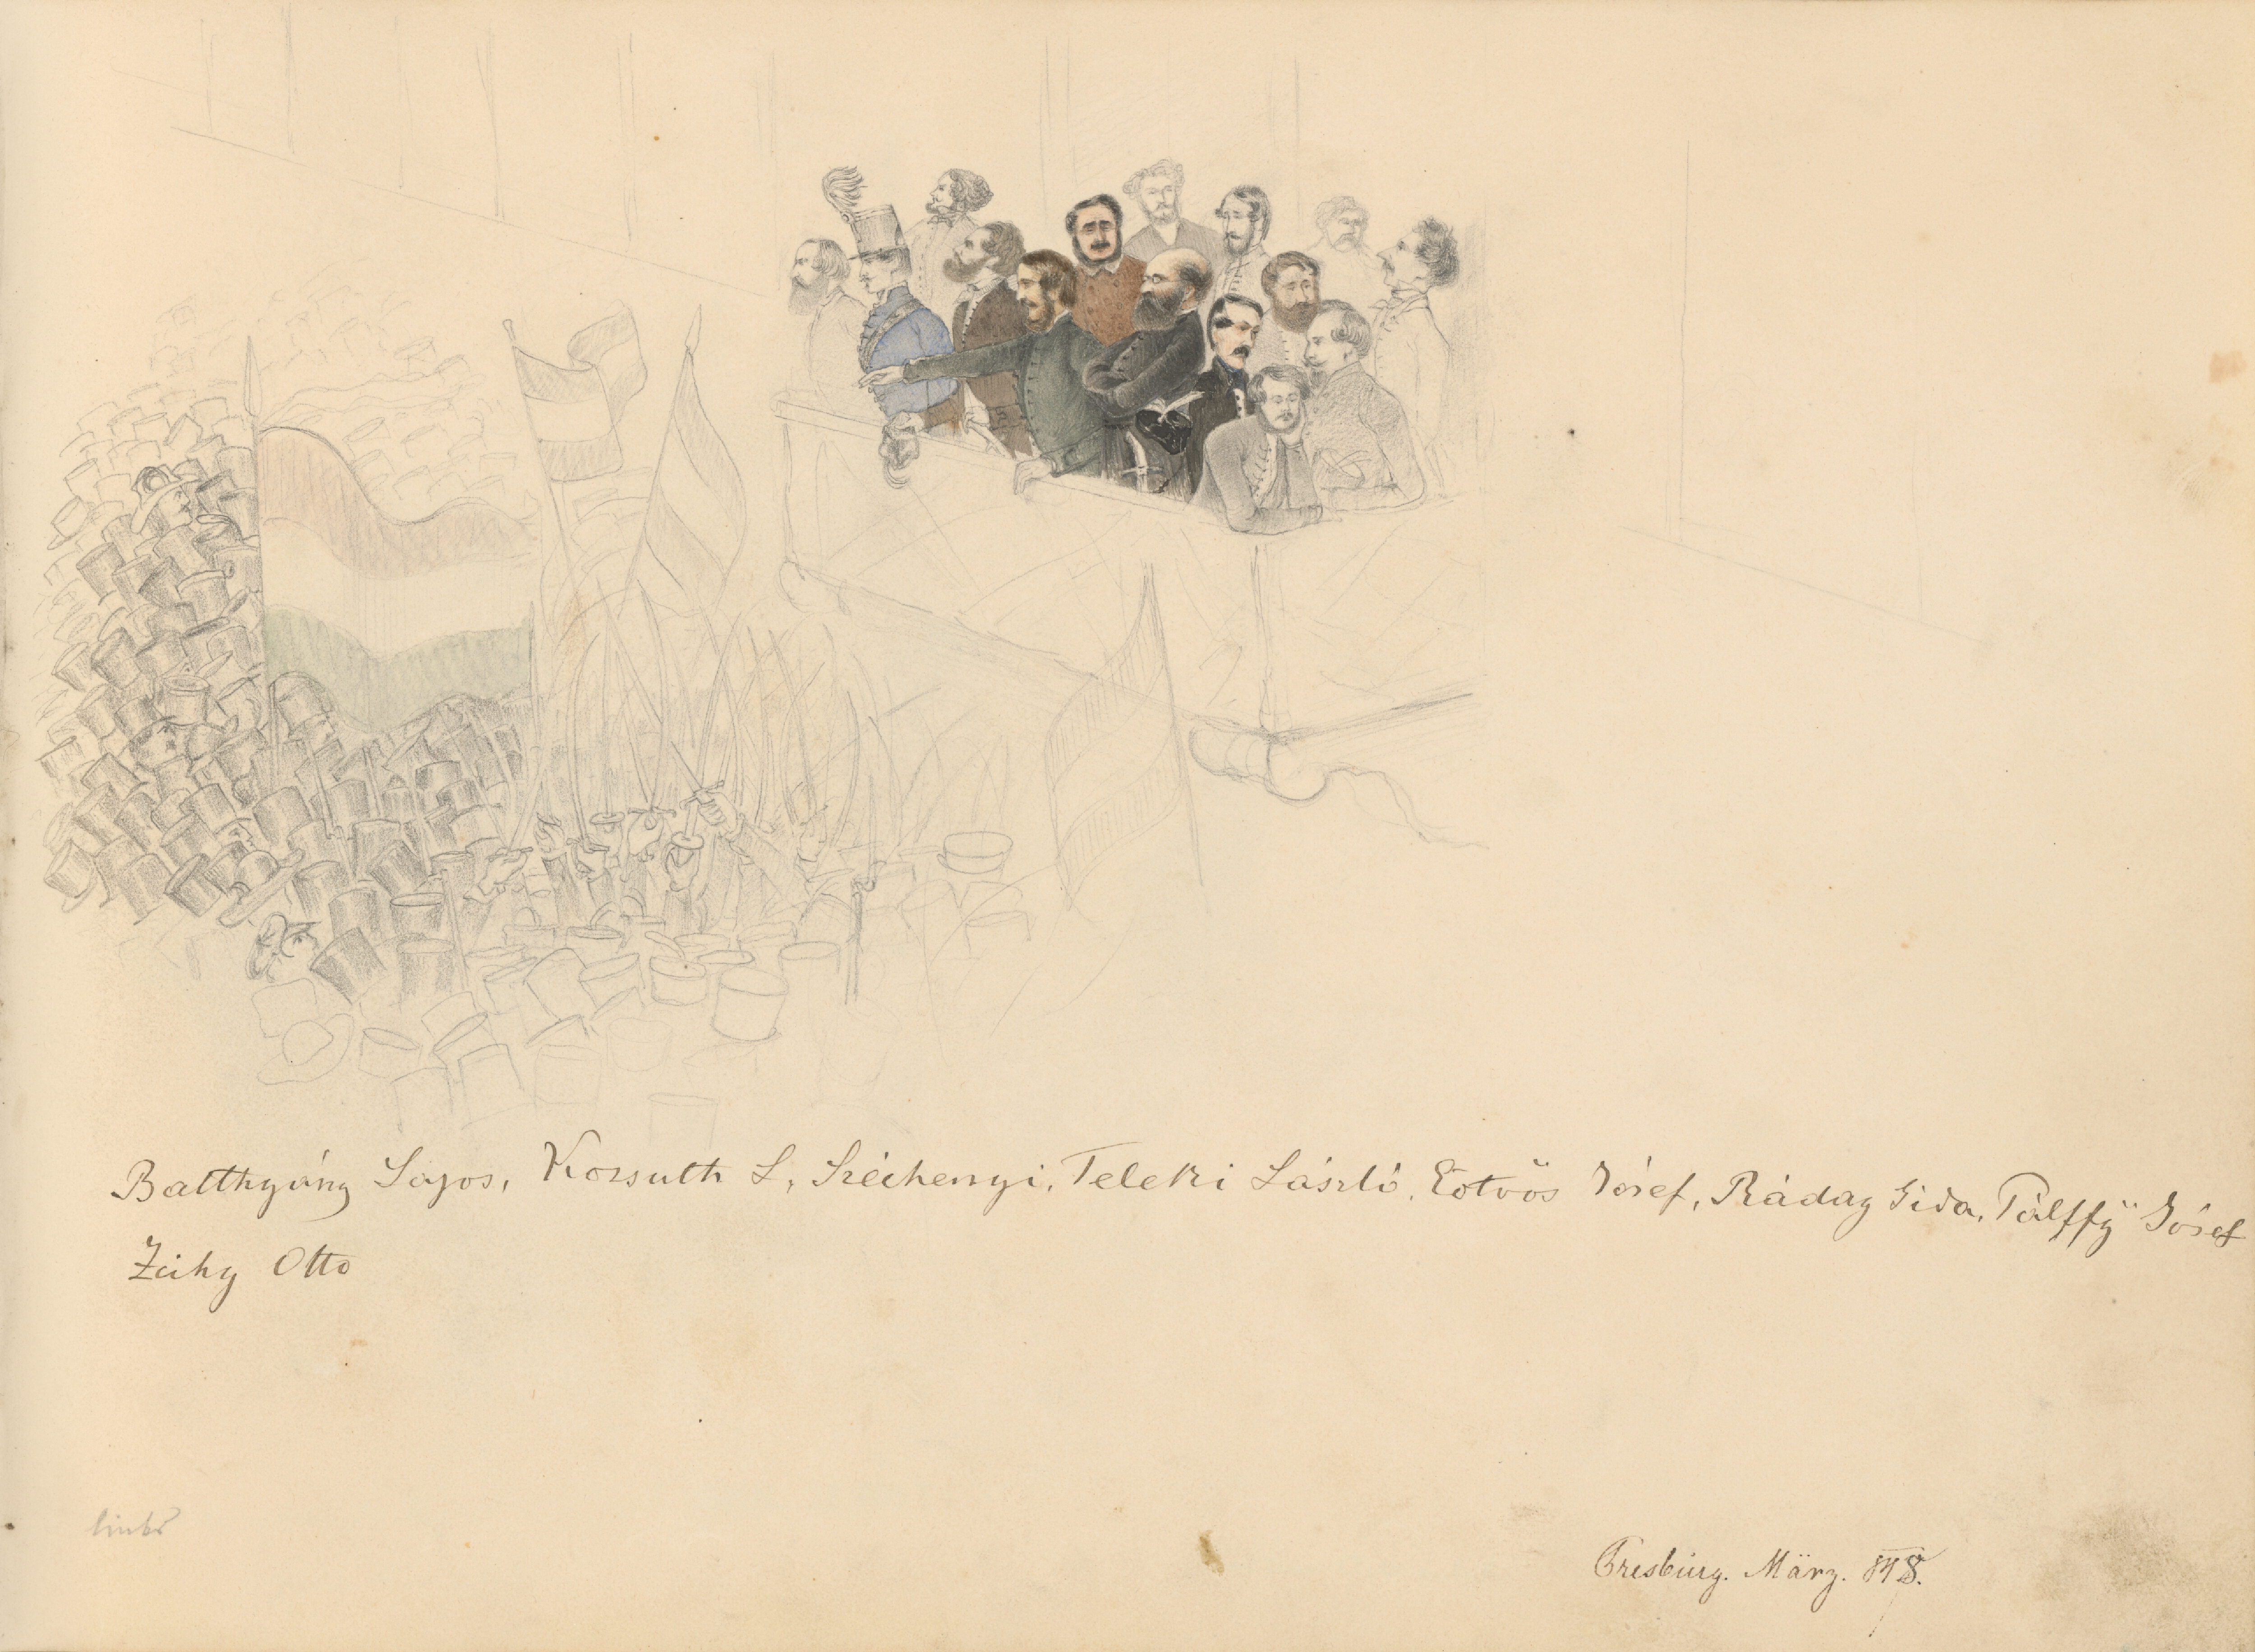 Batthyány Lajos, Kossuth L, Széchenyi, Teleki László, Eötvös Jósef, Ráday Gida, Pálffÿ Jósef
Zichy Otto
links
Presburg. März. 848.